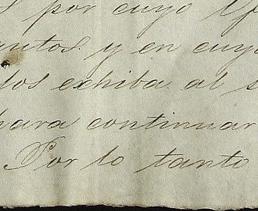 por cuyo
y en cuyo
los exhiba al
para continuar
Por lo tanto